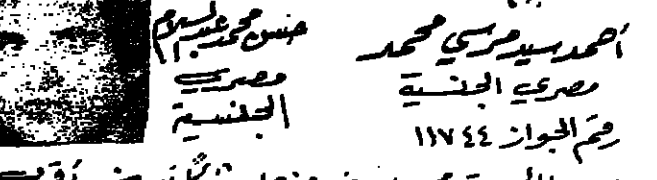 أحمد سيد مرسي محمد
مصري الجنسية
رقم الجواز ١١٧٤٤
حسن محمد عبدالسلام
مصري
الجنسية